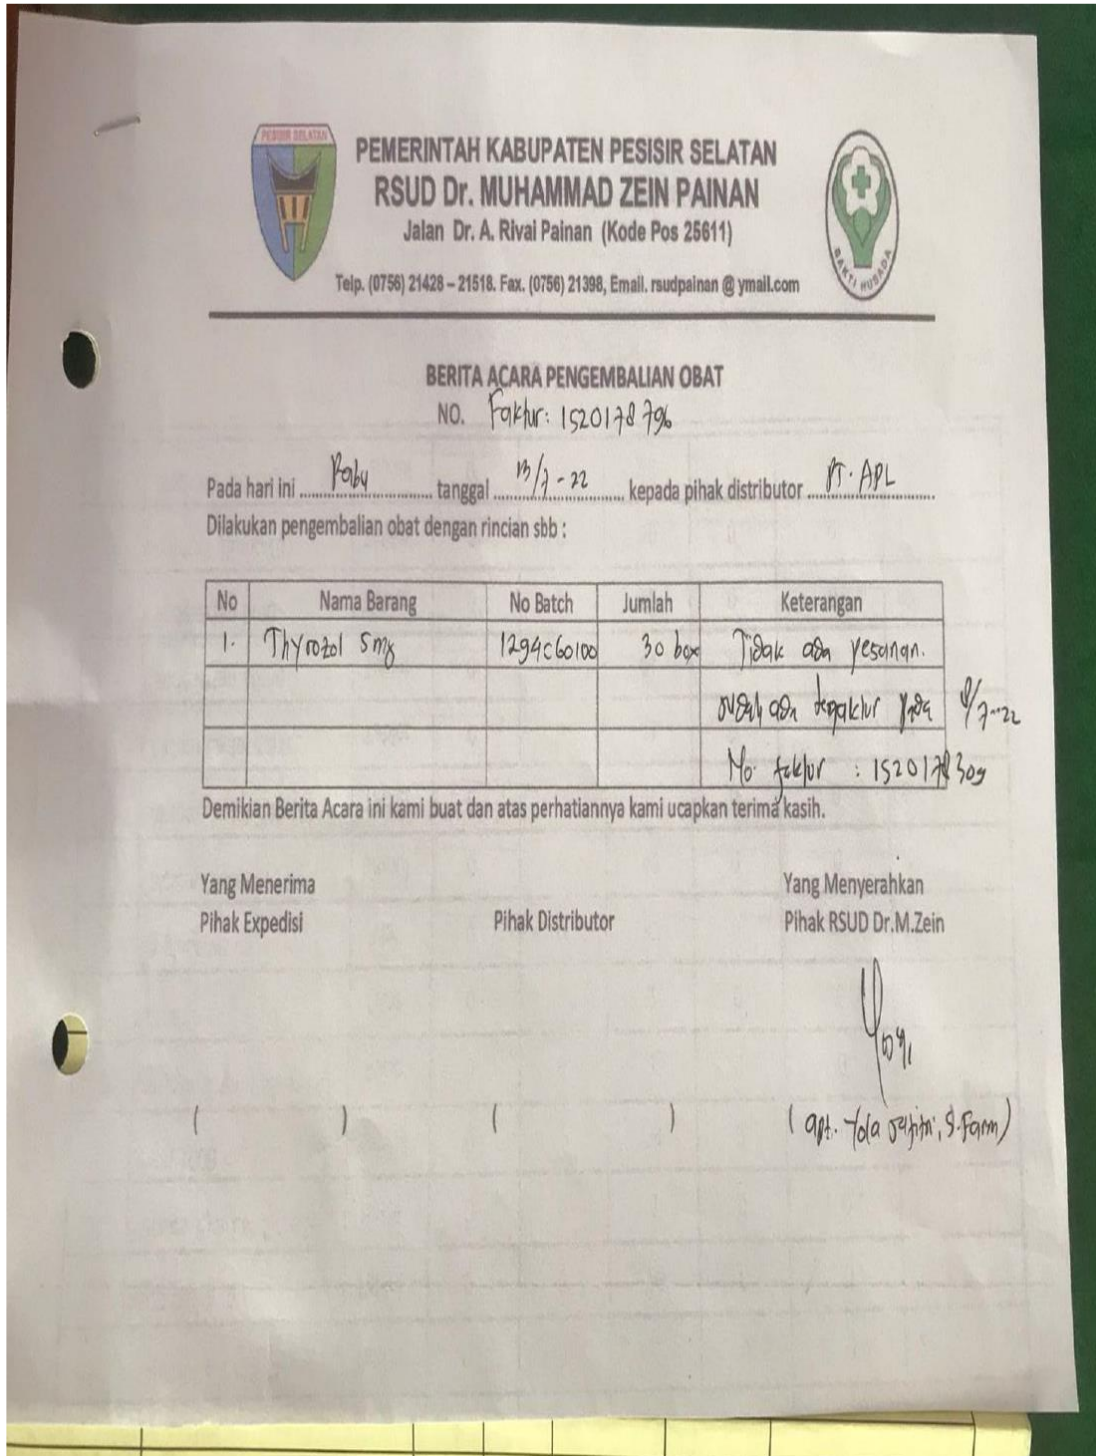 PESISIR SELATAN
PEMERINTAH KABUPATEN PESISIR SELATAN
RSUD Dr. MUHAMMAD ZEIN PAINAN
Jalan Dr. A. Rivai Painan (Kode Pos 25611)
Telp. (0756) 21428 – 21518. Fax. (0756) 21398, Email. rsudpainan @ ymail.com
BAKTI HUSADA
BERITA ACARA PENGEMBALIAN OBAT
NO. Faktur: 1520178796
Pada hari ini Rabu tanggal 13/7-22 kepada pihak distributor PT. APL
Dilakukan pengembalian obat dengan rincian sbb :
No Nama Barang No Batch Jumlah Keterangan
1. Thyrozol 5mg 1294C60100 30 box Tidak ada pesanan.
sudah ada faktur pada 8/7-22
No. faktur : 1520178309
Demikian Berita Acara ini kami buat dan atas perhatiannya kami ucapkan terima kasih.
Yang Menerima Yang Menyerahkan
Pihak Expedisi Pihak Distributor Pihak RSUD Dr.M.Zein
( ) ( ) ( apt. Yola , S.Farm)